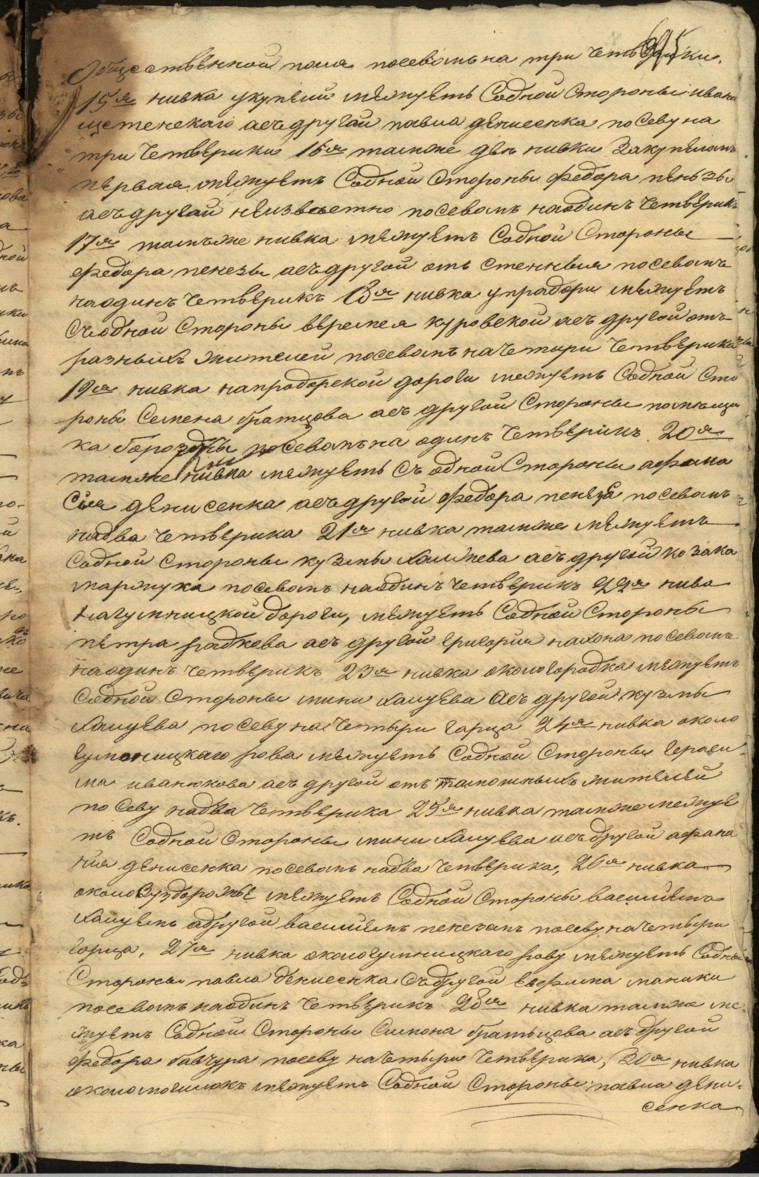 Общественной поля посевомъ на три четверики.
15я нивка укупъли межуетъ Содной Стороны Ивана
щетенскаго асъ другой павла денисенка посеву на
три четверики 16я тамже две нивки Закупъломъ
первая межуетъ Содной Стороны федора пенезы
асъ другой неизвестно посевомъ наодинъ четверикъ
17я тамъже нивка межуетъ Содной Стороны
федора пенезы асъ другой отъ стенныя посевомъ
наодинъ четверикъ 18я нивка упрадори межуетъ
Съодной Стороны Еремея куровской асъ другой отъ
разныхъ жителей посевомъ на четыри четверика
19я нивка напрадорской дороги межуетъ Содной Сто
роны Семена братцова асъ другой Стороны
ка бороздны посевомъ на одинъ четверикъ. 20я
тамже нивка межуетъ Съ одной Стороны афана
сия денисенка асъ другой федора пенеза посевомъ
надва четверика 21я нивка тамже межуетъ
Содной Стороны кузмы халуева асъ другой козака
маржука посевомъ наодинъ четверикъ 22я нива
нагумницкой дороги, межуетъ Содной Стороны
петра радкева асъ другой григория нахона посевомъ
наодинъ четверикъ 23я нивка окологородка межуетъ
Содной Стороны мини халуева асъ другой кузмы
халуева посеву на четыри гарца 24я нивка около
гумницкаго рова межуетъ Содной Стороны гераси-
ма иванюкова асъ другой отъ тамошныхъ жителей
посеву надва четверика 25я нивка тамже межуе
тъ Содной Стороны мини халуева асъ другой афана
ния денисенка посевомъ надва четверика, 26я нивка
около межуетъ Содной Стороны василиемъ
халуемъ адругой василиемъ пенезамъ посеву на четыри
гарца. 27я нивка окологумницкаго рову межуетъ Содной
Стороны павла денисенка Съдругой Ефрема маника
посевомъ наодинъ четверикъ 28я нивка тамже ме
жуетъ Содной Стороны Симона братьцова асъ другой
федора гавчура посеву на четыри четверика, 29я нивка
околомогилокъ межуетъ Содной Стороны павла дени-
сенка